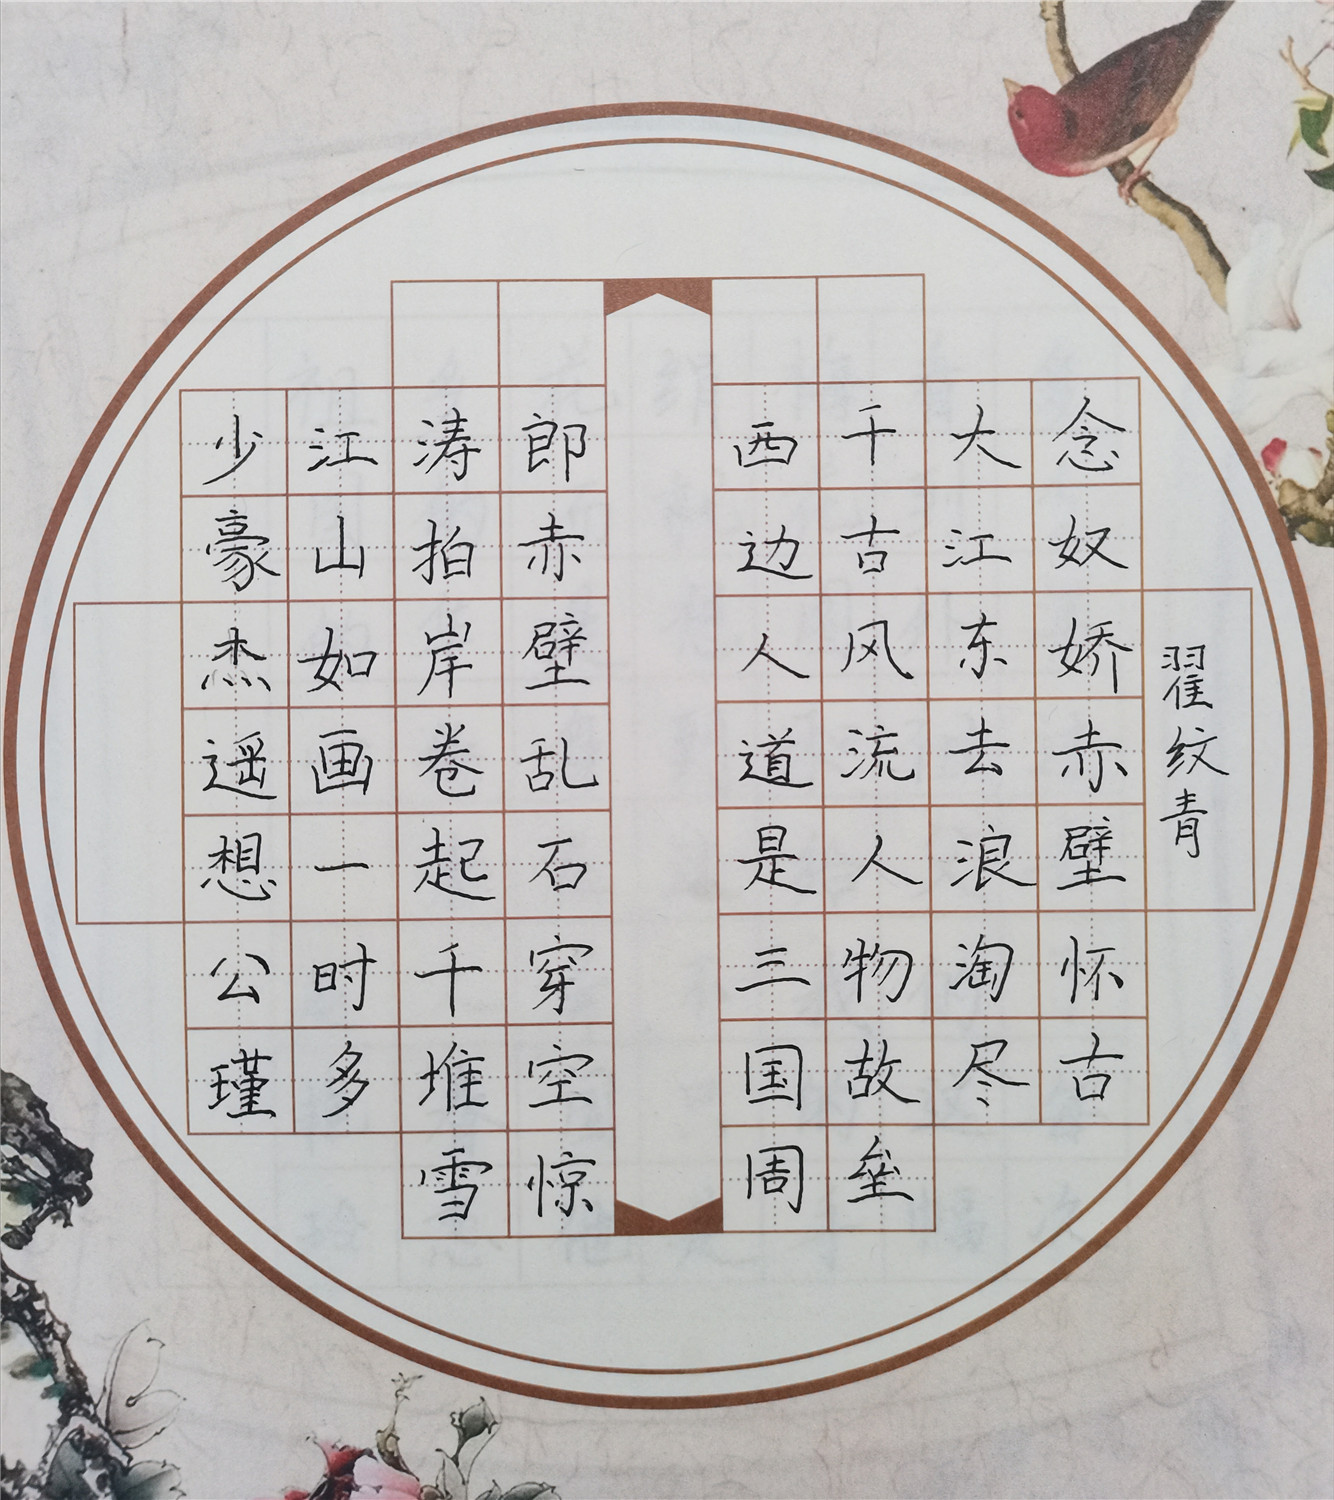 翟纹青
念奴娇赤壁怀古
大江东去浪淘尽
千古风流人物故垒
西边人道是三国周
郎赤壁乱石穿空惊
涛拍岸卷起千堆雪
江山如画一时多
少豪杰遥想公瑾